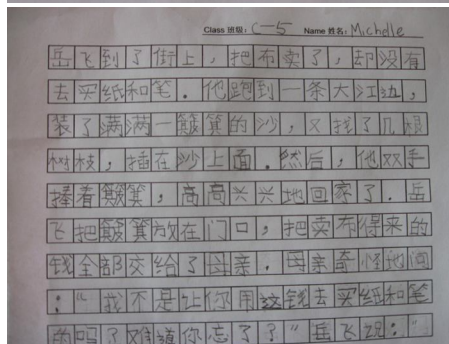 Class 班级: C-5 Name 姓名: Michelle
岳飞到了街上,把布卖了,却没有
去买纸和笔.他跑到一条大江边,
装了满满一簸箕的沙,又找了几根
树枝,插在沙上面.然后,他双手
捧着簸箕,高高兴兴地回家了.岳
飞把簸箕放在门口,把卖布得来的
钱全部交给了母亲.母亲奇怪地问
:“我不是让你用这钱去买纸和笔
的吗?难道你忘了?”岳飞说:“